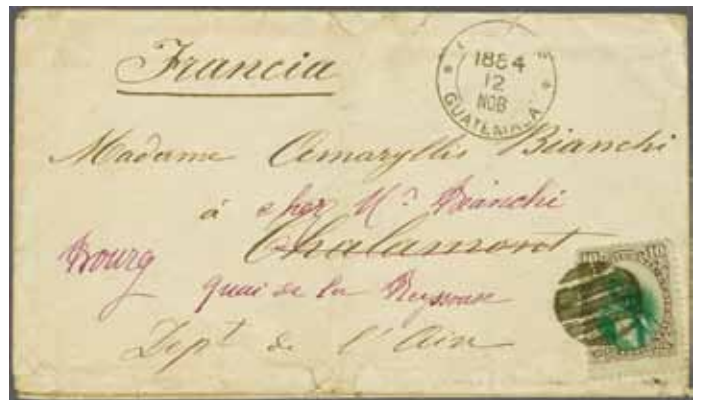 Francia
1884
12
NOB
GUATEMALA
Madame Amaryllis Bianchi
à chez Mr. Bianchi
Chalamont
Bourg
quai de la Reyssouse
Dept de l'Ain
10 10